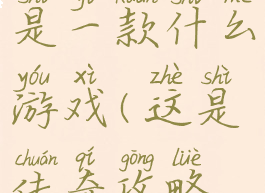 是一款什么
yóu xì zhè shì
游戏(这是
chuán qí gōng lüè
传奇攻略